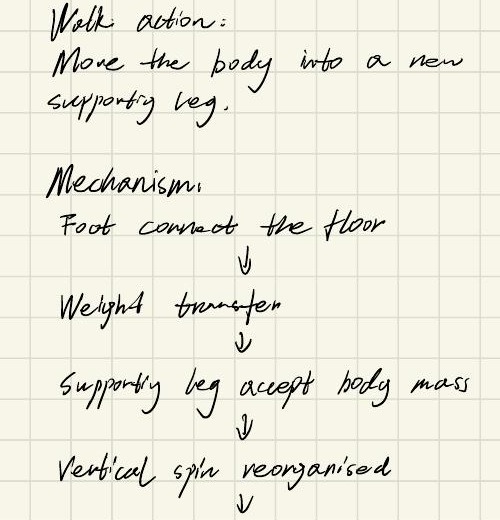 Walk action:
Move the body into a new
supporting leg.
Mechanism.
Foot connect the floor
↓
Weight transfer
↓
Supporting leg accept body mass
↓
Vertical spin reorganised
↓